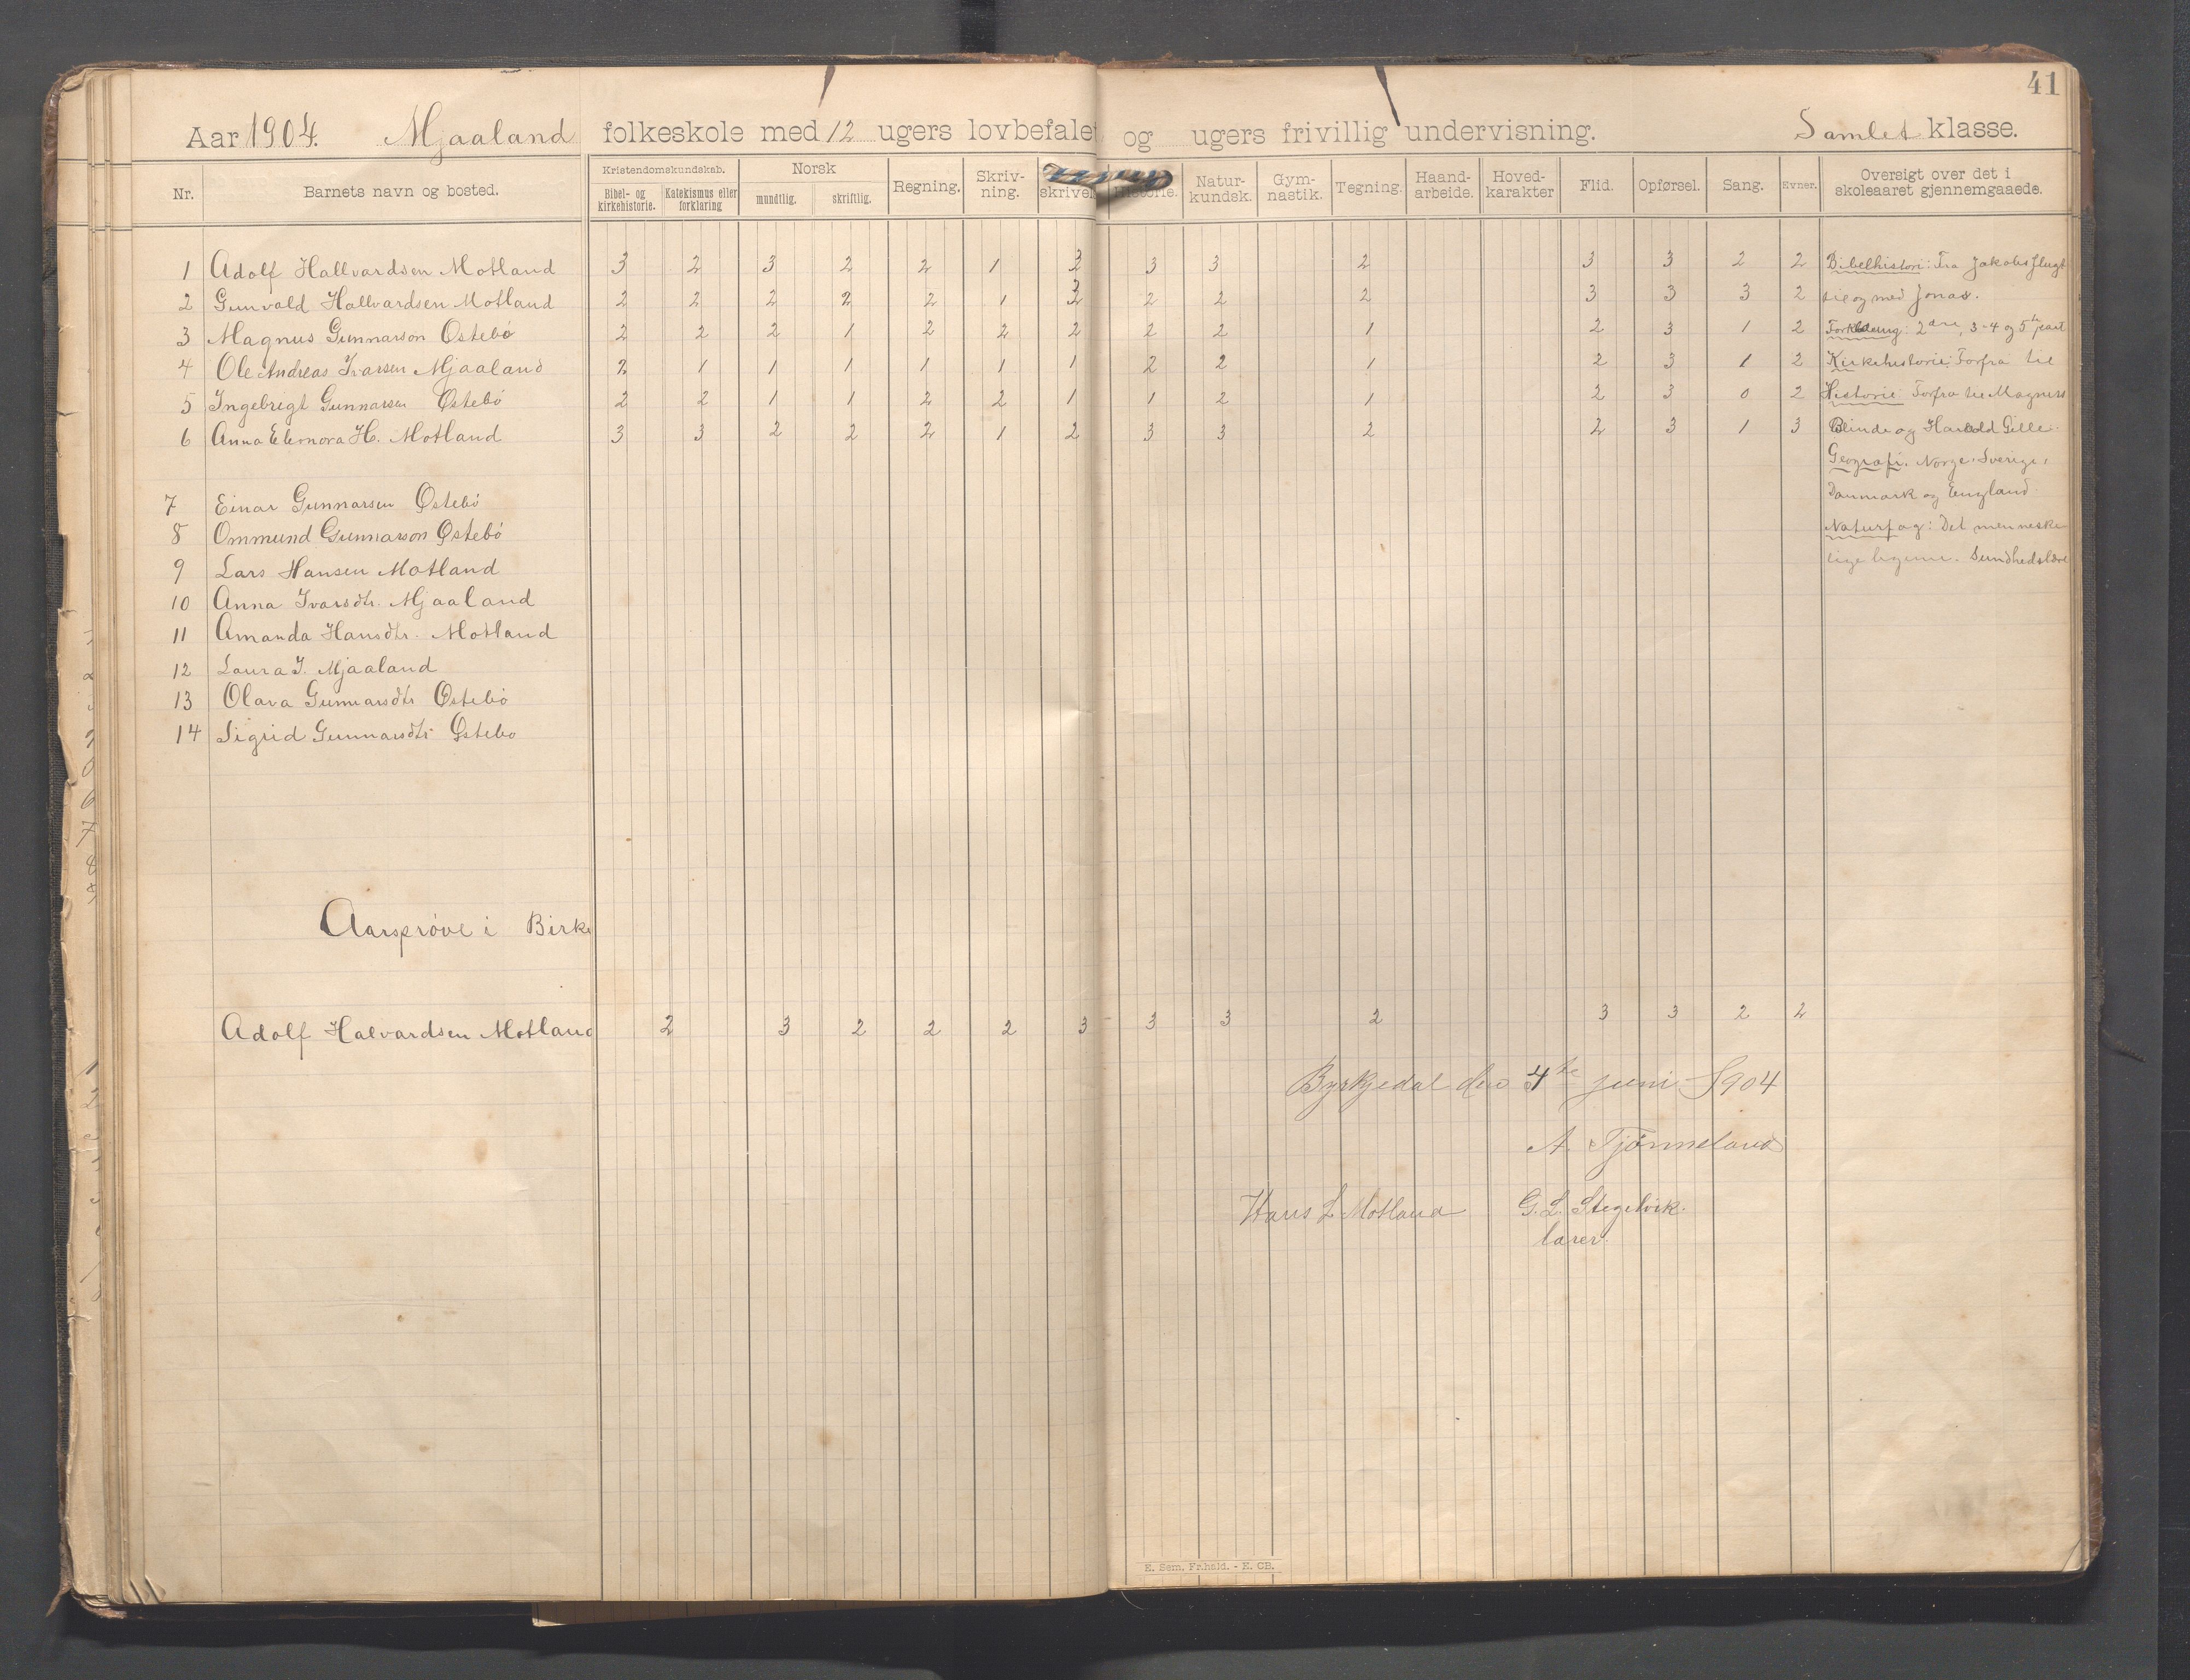 41
Aar 1904. Mjaaland folkeskole med 12 ugers lovbefalet og ugers frivillig undervisning. Samlet klasse.
Nr. Barnets navn og bosted. Kristendomskundskab. Bibel- og kirkehistorie. Katekismus eller forklaring Norsk mundtlig. skriftlig. Regning. Skriv-ning. skrivel Historie. Natur-kundsk. Gym-nastik. Tegning. Haand-arbeide. Hoved-karakter Flid. Opførsel. Sang. Evner. Oversigt over det i skoleaaret gjennemgaaede.
1 Adolf Hallvardsen Motland 3 2 3 2 2 1 3 3 2 3 3 2 2 Bibelhistori: Fra Jakobs flugt
2 Gunvald Hallvardsen Motland 2 2 2 2 2 1 2 2 2 3 3 3 2 til og med Jonas.
3 Magnus Gunnarson Østebø 2 2 2 1 2 2 2 2 2 1 2 3 1 2 2dre, 3-4 og 5te part
4 Ole Andreas Ivarsen Mjaaland 2 1 1 1 1 1 1 2 2 1 2 3 1 2 Kirkehistorie: Forfra til
5 Ingebrigt Gunnarsen Østebø 2 2 1 1 2 2 1 1 2 1 2 3 0 2 Historie: Forfra til Magnus
6 Anna Eleonora H. Motland 3 3 2 2 2 1 2 3 3 2 2 3 1 3 Blinde og Harald Gille.
Geografi. Norge, Sverige,
7 Einar Gunnarsen Østebø Danmark og England.
8 Ommund Gunnarson Østebø Naturfag: Det menneske
9 Lars Hansen Motland lige legeme. Sundhedslære
10 Anna Ivarsdtr. Mjaaland
11 Amanda Hansdtr. Motland
12 Laura I. Mjaaland
13 Olava Gunnarsdtr Østebø
14 Sigrid Gunnarsdtr Østebø
Aarsprøve i Birke
Adolf Halvardsen Motland 2 3 2 2 2 3 3 3 2 3 3 2 2
Byrkjedal den 4de juni 1904
A. Tjønneland
Hans L Motland G. L. Stegelvik.
lærer.
E. Sem, Fr.hald. - E. CB.